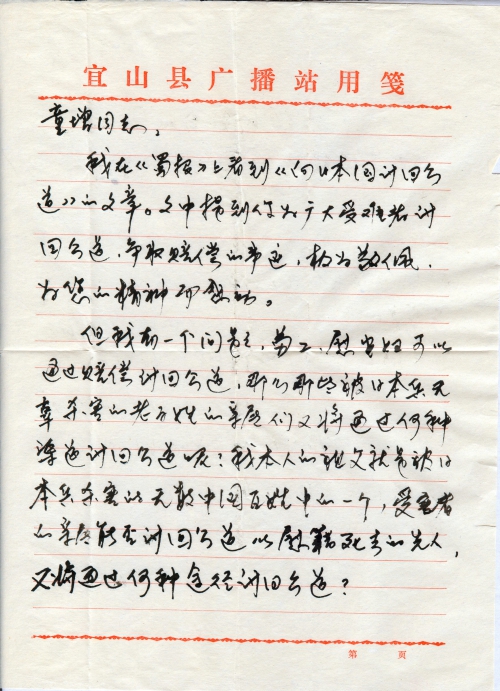 宜山县广播站用笺
童增同志，
我在《蜀报》上看到《向日本国讨回公
道》的文章。文中提到你为广大受难者讨
回公道，争取赔偿的事迹，极为敬佩，
为您的精神而感动。
但我有一个问题，劳工、慰安妇可以
通过赔偿讨回公道，那么那些被日本兵无
辜杀害的老百姓的亲属们又将通过何种
渠道讨回公道呢？我本人的祖父就是被日
本兵杀害的无数中国百姓中的一个，受害者
的亲属能否讨回公道以慰藉死去的先人，
又将通过何种途径讨回公道？
第 页